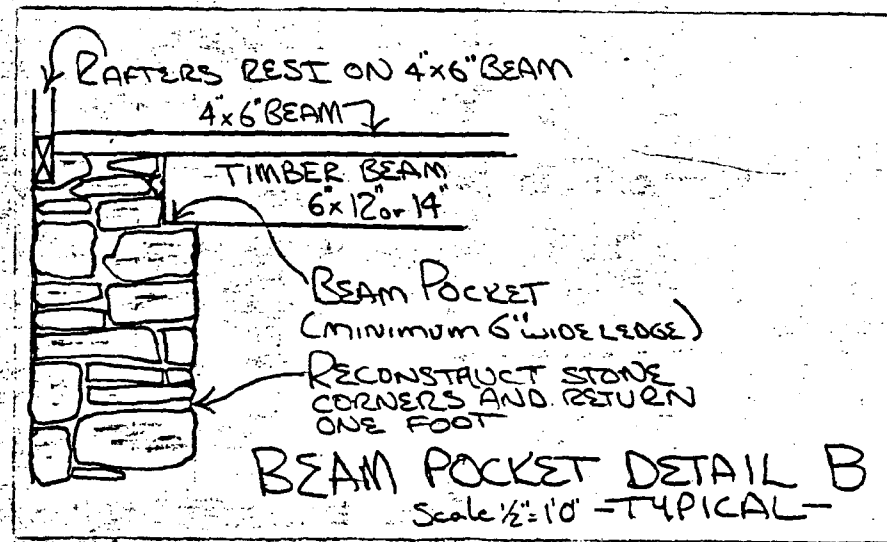 RAFTERS REST ON 4"x6" BEAM
4"x6" BEAM
TIMBER BEAM
6"x12" or 14"
BEAM POCKET
(MINIMUM 6" WIDE LEDGE)
RECONSTRUCT STONE
CORNERS AND RETURN
ONE FOOT
BEAM POCKET DETAIL B
Scale 1/2"=1'0" -TYPICAL-